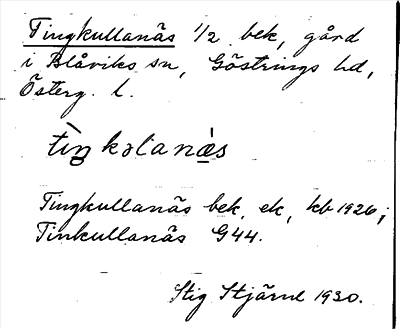 Tingkullanäs 1/2 bek, gård
i Blåviks sn, Göstrings hd,
Österg. l.
tiŋkɔlanæs
Tingkullanäs bek, ek, kb 1926;
Tinkullanäs G44.
Stig Stjärne 1930.